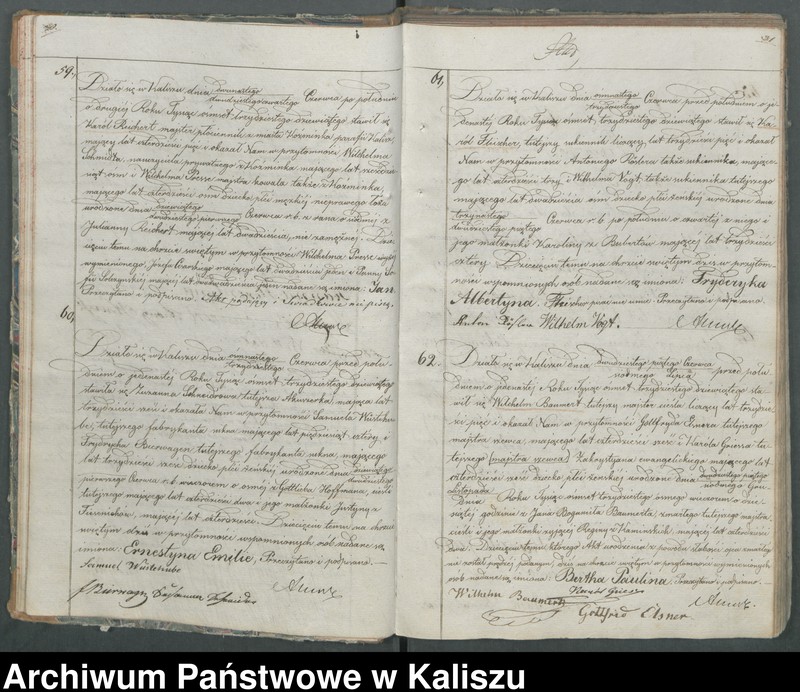 59.
Działo się w Kaliszu dnia dwunastego
dwudziestego czwartego Czerwca po południu
o drugiej Roku Tysiąc ośmset trzydziestego dziewiątego stawił się
Karol Reichert majster płóciennik z miasta Koźminka parafii
mający lat czterdzieści pięć i okazał Nam w przytomności Wilhelma
Schmidta, nauczyciela prywatnego z Koźminka, mającego lat
i Wilhelma Poesse majstra kowala także z Koźminka,
mającego lat czterdzieści ośm dziecko płci męzkiej nieprawego łoża
urodzone dnia dziewiątego
dwudziestego pierwszego Czerwca r. b. z rana o ósmej z
Julianny Reichert mającej lat dwadzieścia, nie zamężnej. Dzie-
cięciu temu na chrzcie świętym w przytomności Wilhelma Poesse
wymienionego, Józefa mającego lat dwadzieścia jeden i Panny
mającej lat dwadzieścia jeden nadane są imiona: Jan
Przeczytano i podpisano.
60.
Działo się w Kaliszu dnia osmnastego
trzydziestego Czerwca przed połu-
dniem o jedenastej Roku Tysiąc ośmset trzydziestego dziewiątego
stawiła się Zuzanna Schneidrowa tutejsza Akuszerka, mająca lat
trzydzieści sześć i okazała Nam w przytomności Samuela Wüstehu-
be, tutejszego fabrykanta sukna mającego lat pięćdziesiąt cztery i
Frydryka Bierwagen tutejszego fabrykanta sukna, mającego
lat trzydzieści sześć dziecko płci żeńskiej urodzone dnia dziewiątego
dwudziestego
pierwszego Czerwca r. b. wieczorem o ósmej z Gottlieba Hoffmana, cieśli
tutejszego mającego lat czterdzieści dwa i jego małżonki Justyny z
mającej lat czterdzieści. Dziecięciu temu na chrzcie
świętym dziś w przytomności wspomnionych osób nadane są
imiona: Ernestyna Emilie, Przeczytano i podpisano.
Samuel Wüstehube
61.
Działo się w Kaliszu dnia osmnastego
trzydziestego Czerwca przed południem o je-
denastej Roku Tysiąc ośmset trzydziestego dziewiątego stawił się Ka-
rol Fleischer, tutejszy sukiennik liczący lat trzydzieści pięć i okazał
Nam w przytomności Antoniego Röslera także sukiennika, mające-
go lat czterdzieści trzy i Wilhelma Voigt także sukiennika tutejszego
mającego lat dwadzieścia ośm dziecko płci żeńskiej urodzone dnia
trzynastego
dwudziestego piątego Czerwca r. b. po południu o czwartej z niego i
jego małżonki Karoliny z mającej lat trzydzieści
cztery. Dziecięciu temu na chrzcie świętym dziś w przytom-
ności wspomnionych osób nadane są imiona: Fryderyka
Albertyna. Fleischer pisać nie umie. Przeczytano i podpisano.
Anton Rösler Wilhelm Vogt.
62.
Działo się w Kaliszu dnia dwudziestego piątego Czerwca
siódmego Lipca przed połu-
dniem o jedenastej Roku Tysiąc ośmset trzydziestego dziewiątego sta-
wił się Wilhelm Baumert tutejszy majster cieśla liczący lat trzydzie-
ści pięć i okazał Nam w przytomności Gottfryda Elsnera tutejszego
majstra szewca, mającego lat czterdzieści sześć i Karola Gniesera tu-
tejszego (majstra szewca) Zakrystyana ewangelickiego mającego lat
czterdzieści sześć dziecko płci żeńskiej urodzone dnia dwudziestego piątego
Listopada
Roku Tysiąc ośmset trzydziestego ósmego wieczorem o
godzinie z Jana Bogumiła Baumerta, zmarłego tutejszego majstra
cieśli i jego małżonki żyjącej Reginy z Kamińskich, mającej lat czterdzieści
dwa. Dziecięciu temu którego Akt urodzenia z powodu słabości ojca zmarłego
na został później podanym, dziś na chrzcie świętym w przytomności wymienionych
osób nadane są imiona: Bertha Paulina. Przeczytano i podpisano.
Wilhelm Baumert
Gottfried Elsner
Archiwum Państwowe w Kaliszu